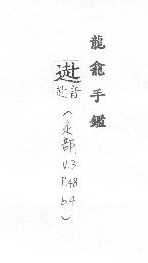 龍龕手鑑
音
(辵部
V.3
P.48
b.4)